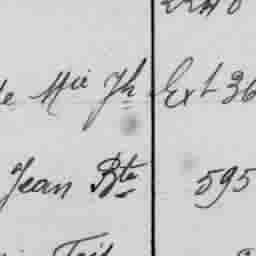 de Mie Jh Ext 36
Jean Bte 595